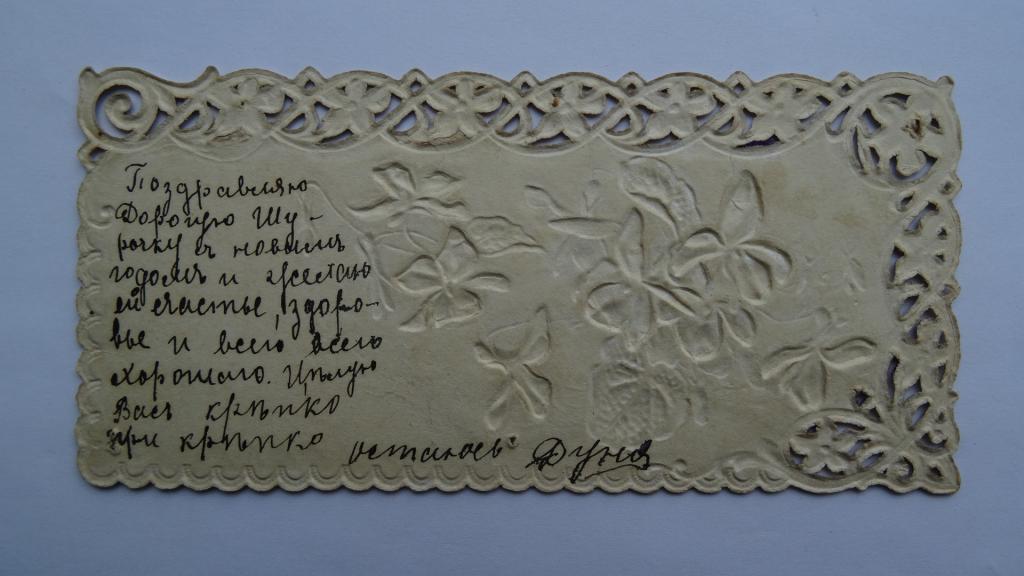 Поздравляю
Дорогую Шу-
рочку съ новымъ
годомъ и желаю
ей счастье, здоро-
вье и всего всего
хорошаго. Цѣлую
Васъ крѣпко
при крѣпко остаюсь Дуня